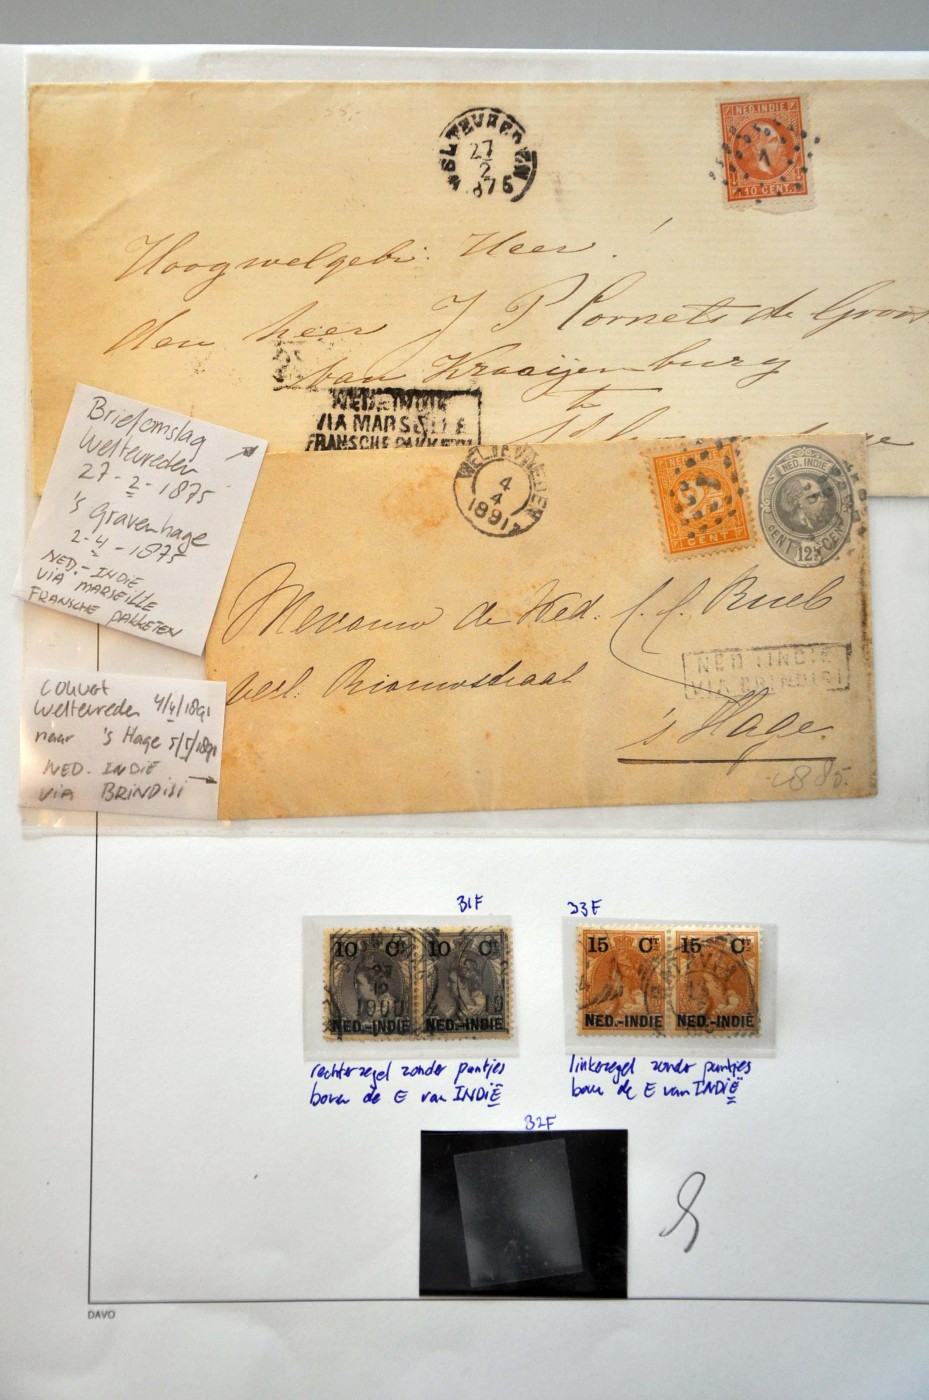 55,-
WELTEVREDEN
27
2
1875
NED. INDIE
1
10 CENT.
Hoogwelgeb. Heer!
den heer J P Cornets de Groot
van Kraaijenburg
te
NED. INDIE
VIA MARSEILLE
FRANSCHE PAKKETT
Briefomslag
Weltevreden
27-2-1875
's Gravenhage
2-4-1875
NED.-INDIE
VIA MARSEILLE
FRANSCHE PAKKETEN
WELTEVREDEN
4
4
1891
CENT
NED. INDIE
CENT 12½ CENT
Mevrouw de Wed.
Riouwstraat
's Hage.
NED. INDIE
VIA BRINDISI
1885.
couvert
Weltevreden 4/4/1891
naar 's Hage 5/5/1891
NED. INDIE
VIA BRINDISI
31F
33F
10 Ct 10 Ct
27
1900
19
NED.-INDIË NED.-INDIE
15 Ct 15 Ct
NED.-INDIE NED.-INDIË
rechterzegel zonder puntjes
boven de E van INDIË
linkerzegel zonder puntjes
boven de E van INDIË
32F
DAVO